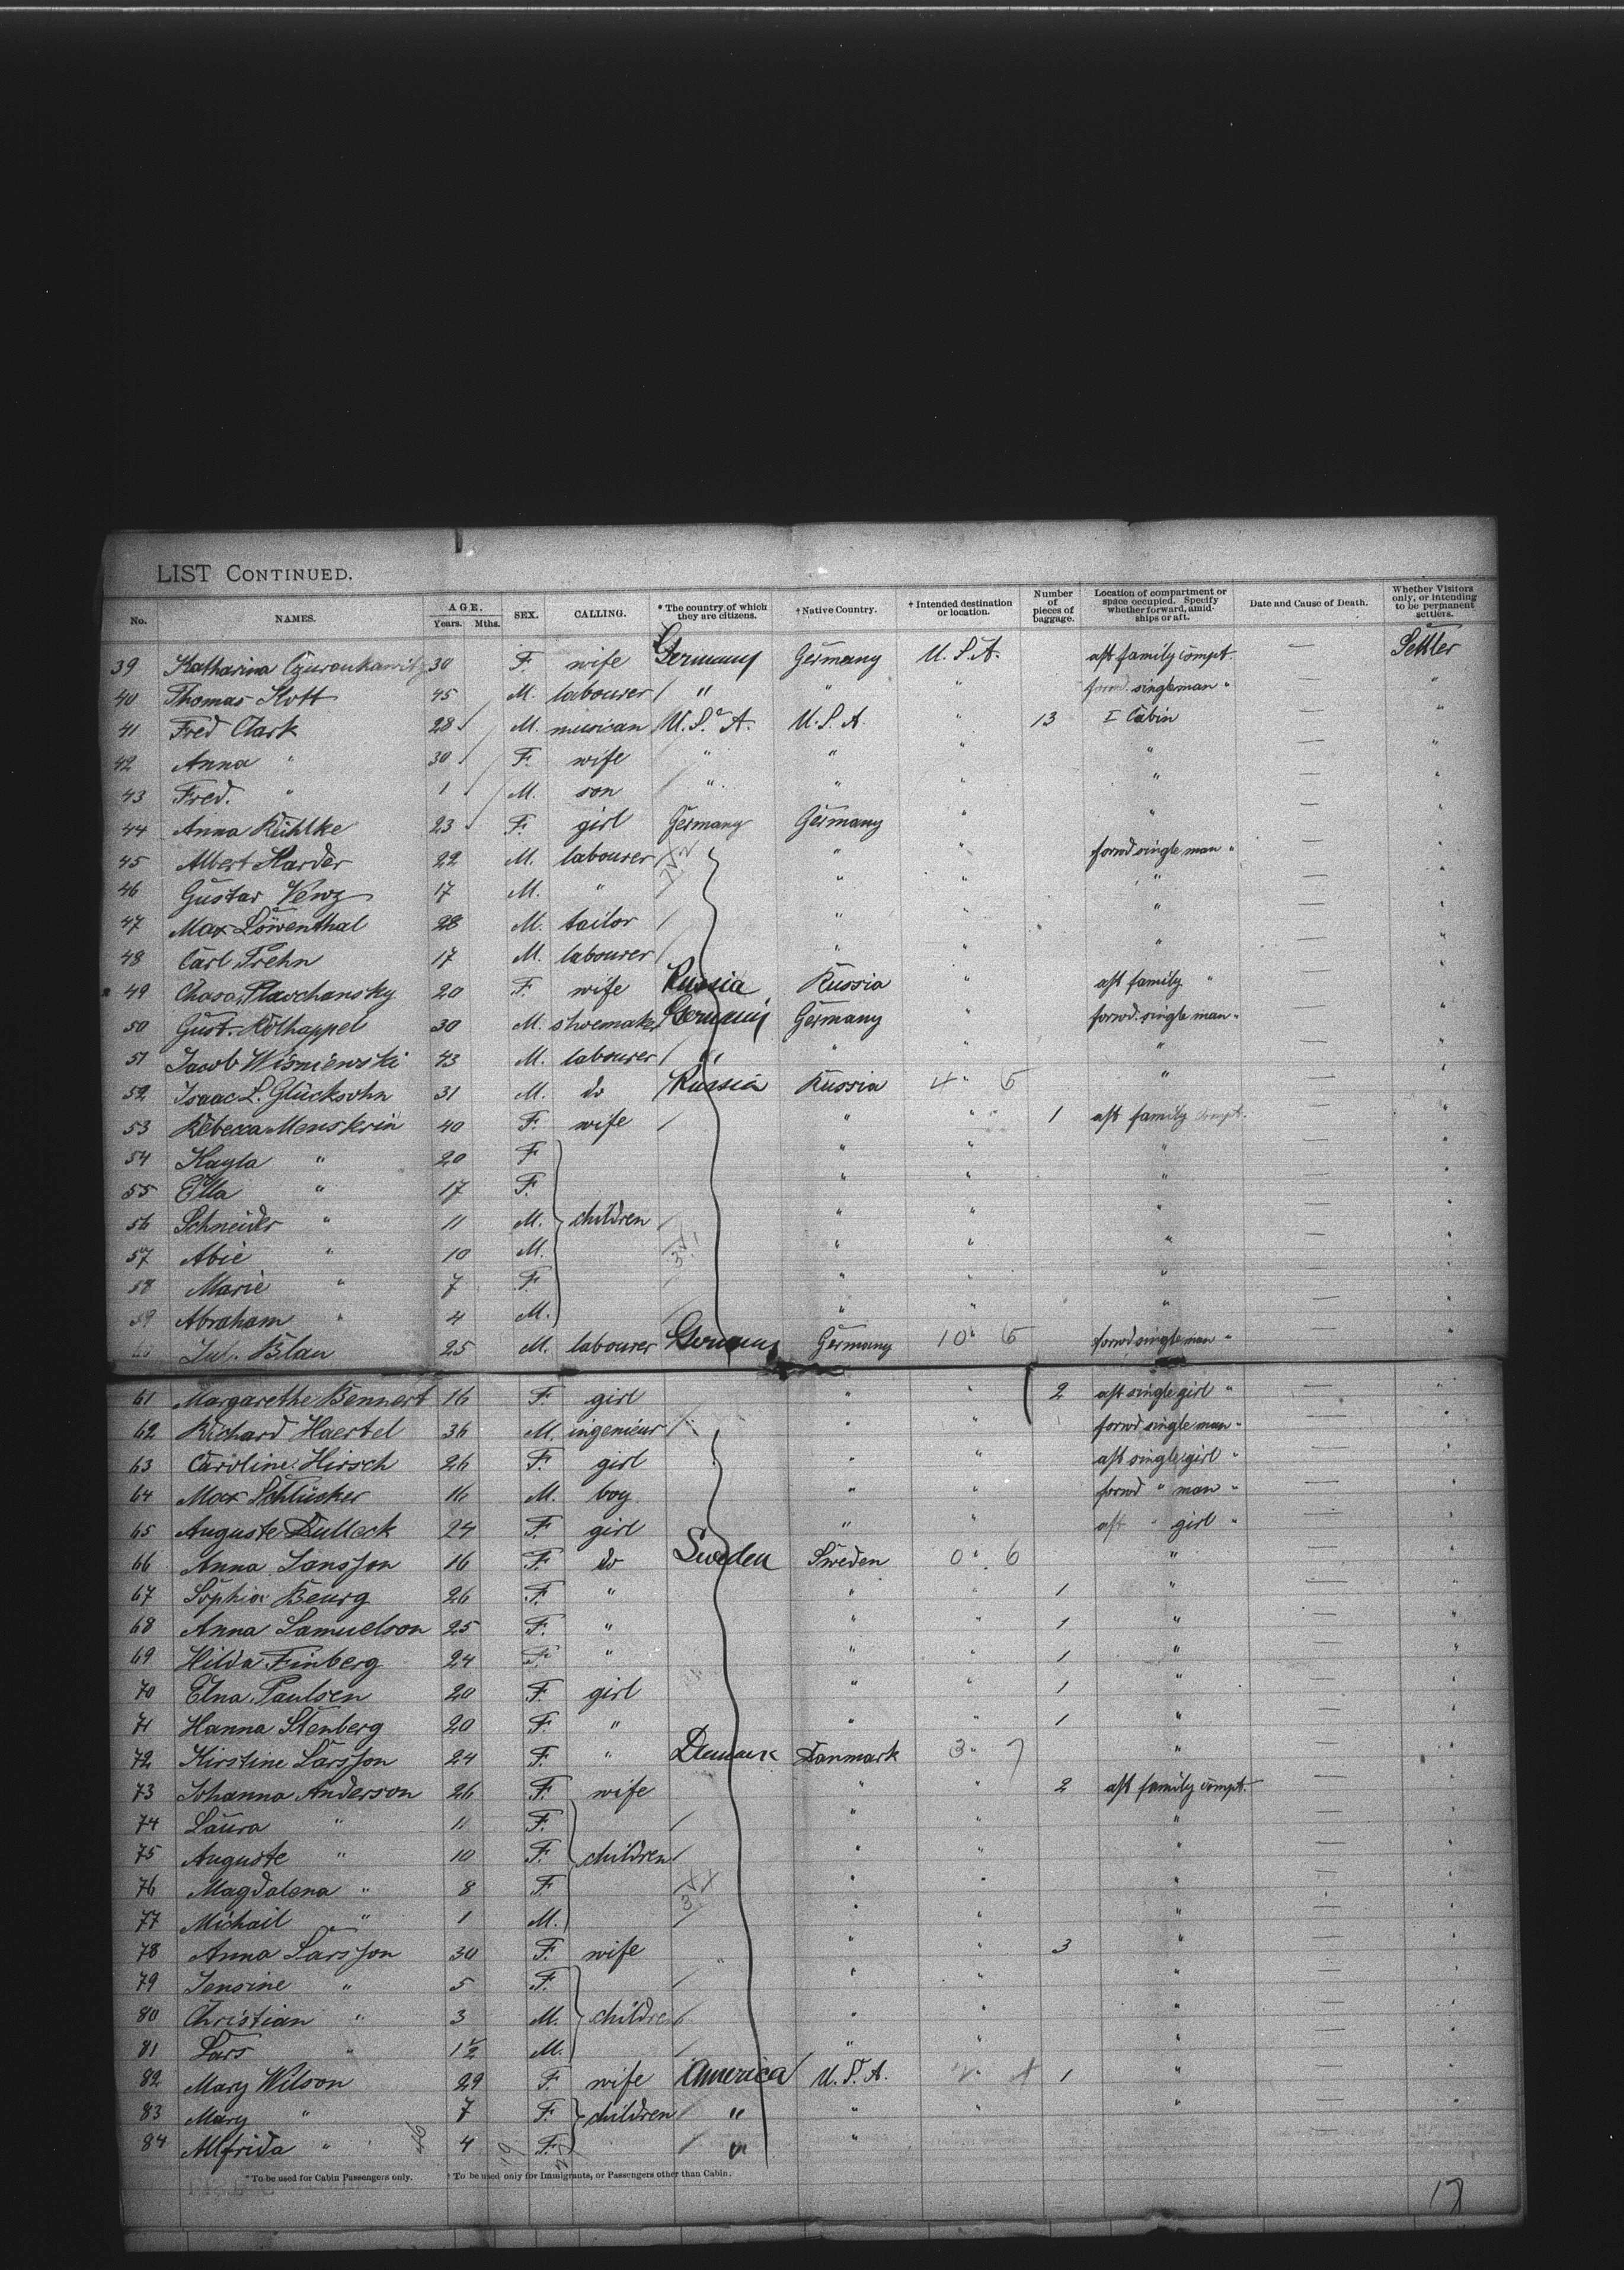 LIST CONTINUED.
No. NAMES. AGE. Years. Mths. SEX. CALLING. * The country of which they are citizens. † Native Country. † Intended destination or location. Number of pieces of baggage. Location of compartment or space occupied. Specify whether forward, amidships or aft. Date and Cause of Death. Whether Visitors only, or intending to be permanent settlers.
39 Katharina 30 F. wife Germany Germany U.S.A. aft family compt. — Settler
40 Thomas Kott 45 M. labourer " " forwd. singleman " — "
41 Fred Clark 28 M. musican U.S.A. U.S.A. " 13 I Cabin — "
42 Anna " 30 F. wife " " " " — "
43 Fred. " 1 M. son " " " " — "
44 Anna Kühlke 23 F. girl Germany Germany " " — "
45 Albert Harder 22 M. labourer " " forwd single man " — "
46 Gustav Venz 17 M. " " " " — "
47 Max Löwenthal 28 M. tailor " " " — "
48 Carl Prehn 17 M. labourer " " " — "
49 Chasa Plavchansky 20 F. wife Russia Russia " aft family " — "
50 Gust. Kölhappel 30 M. shoemaker Germany Germany " forwd. single man " — "
51 Jacob Wisniewski 43 M. labourer " " " " — "
52 Isaac L. Glücksohn 31 M. do Russia Russia 4 " 6 " — "
53 Rebecca Menskrin 40 F. wife " " 1 aft family compt. — "
54 Kayla " 20 F " " " — "
55 Ella " 17 F. " " " — "
56 Schneider " 11 M. children " " " — "
57 Abie " 10 M. " " " — "
58 Marie " 7 F " " " — "
59 Abraham " 4 M. " " " — "
Jul. Blau 25 M. labourer Germany Germany 10 " 6 forwd singleman " — "
61 Margarethe Bennert 16 F. girl " " 2 aft single girl " — "
62 Richard Haertel 36 M. ingenieur " " forwd single man " — "
63 Caroline Hirsch 26 F. girl " " aft single girl " — "
64 Max Schlüsker 16 M. boy " " forwd " man " — "
65 Auguste Dulleck 24 F. girl " " aft " girl " — "
66 Anna Jansson 16 F. do Sweden Sweden 0 " 6 " — "
67 Sophia Beurg 26 F. " " " 1 " — "
68 Anna Samuelson 25 F. " " " 1 " — "
69 Hilda Finberg 24 F. " " " 1 " — "
70 Elna Paulsen 20 F. girl " " 1 " — "
71 Hanna Stenberg 20 F. " " " 1 " — "
72 Kirstine Larsson 24 F. " Danmark 3 " 7 " — "
73 Johanna Anderson 26 F. wife " " 2 aft family compt. — "
74 Laura " 11 F. " " " — "
75 Auguste " 10 F. children " " " — "
76 Magdalena " 8 F. " " " — "
77 Michail " 1 M. " " " — "
78 Anna Larsson 30 F. wife " " " 3 " — "
79 Jensine " 5 F. " " " — "
80 Christian " 3 M. children " " " — "
81 Lars " 1½ M. " " " — "
82 Mary Wilson 29 F. wife America U.S.A. " 1 " — "
83 Mary " 7 F. children " " " " — "
84 Alfrida " 4 F. " "
* To be used for Cabin Passengers only. † To be used only for Immigrants, or Passengers other than Cabin.